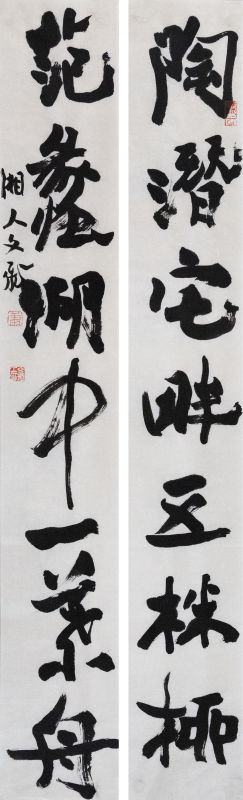 陶潜宅畔五株柳
范蠡湖中一叶舟
湘人文龙